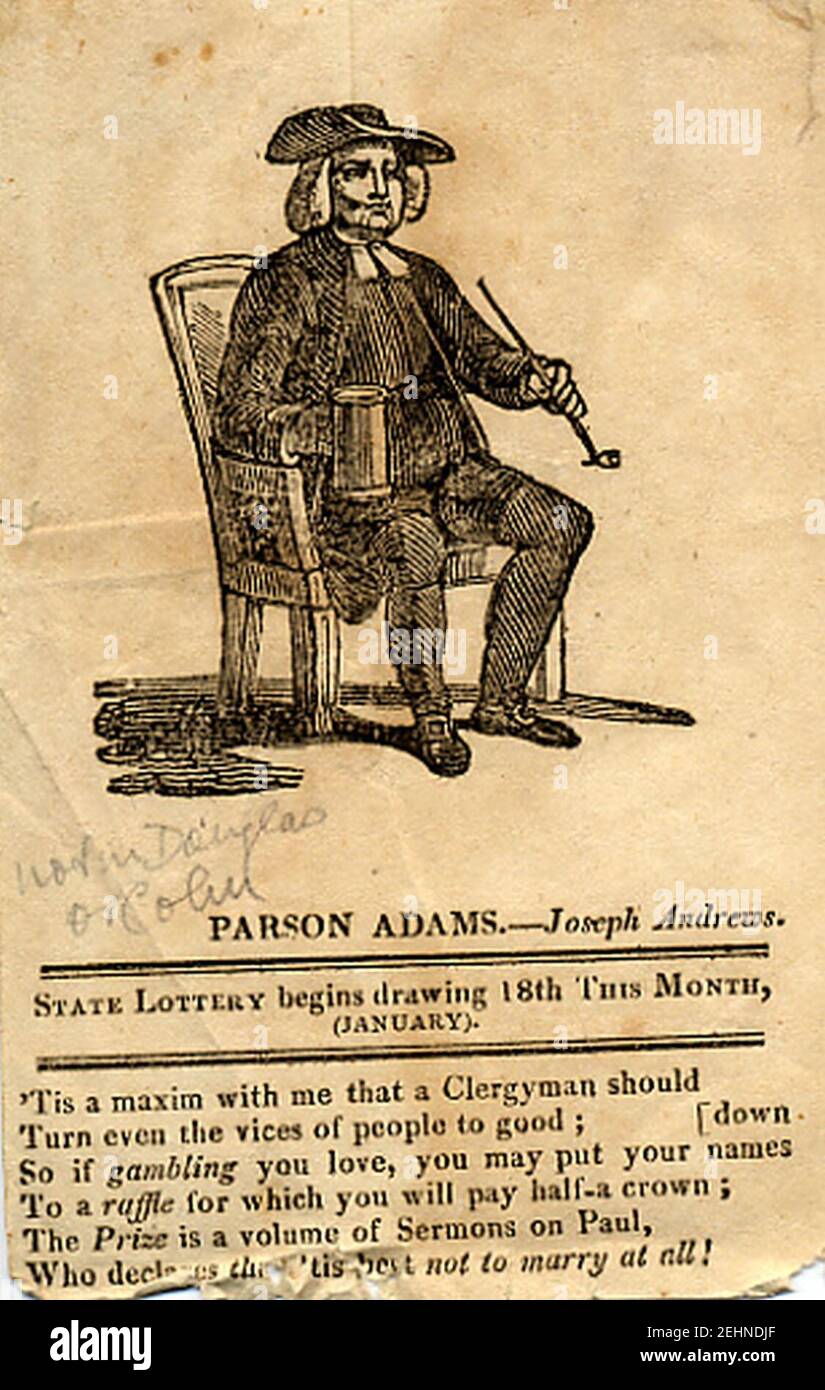 alamy
Douglas
PARSON ADAMS.—Joseph Andrews.
STATE LOTTERY begins drawing 18th THIS MONTH,
(JANUARY).
'Tis a maxim with me that a Clergyman should
Turn even the vices of people to good; [down
So if gambling you love, you may put your names
To a raffle for which you will pay half-a crown;
The Prize is a volume of Sermons on Paul,
Who 'tis best not to marry at all!
alamy
Image ID: 2EHNDJF
www.alamy.com